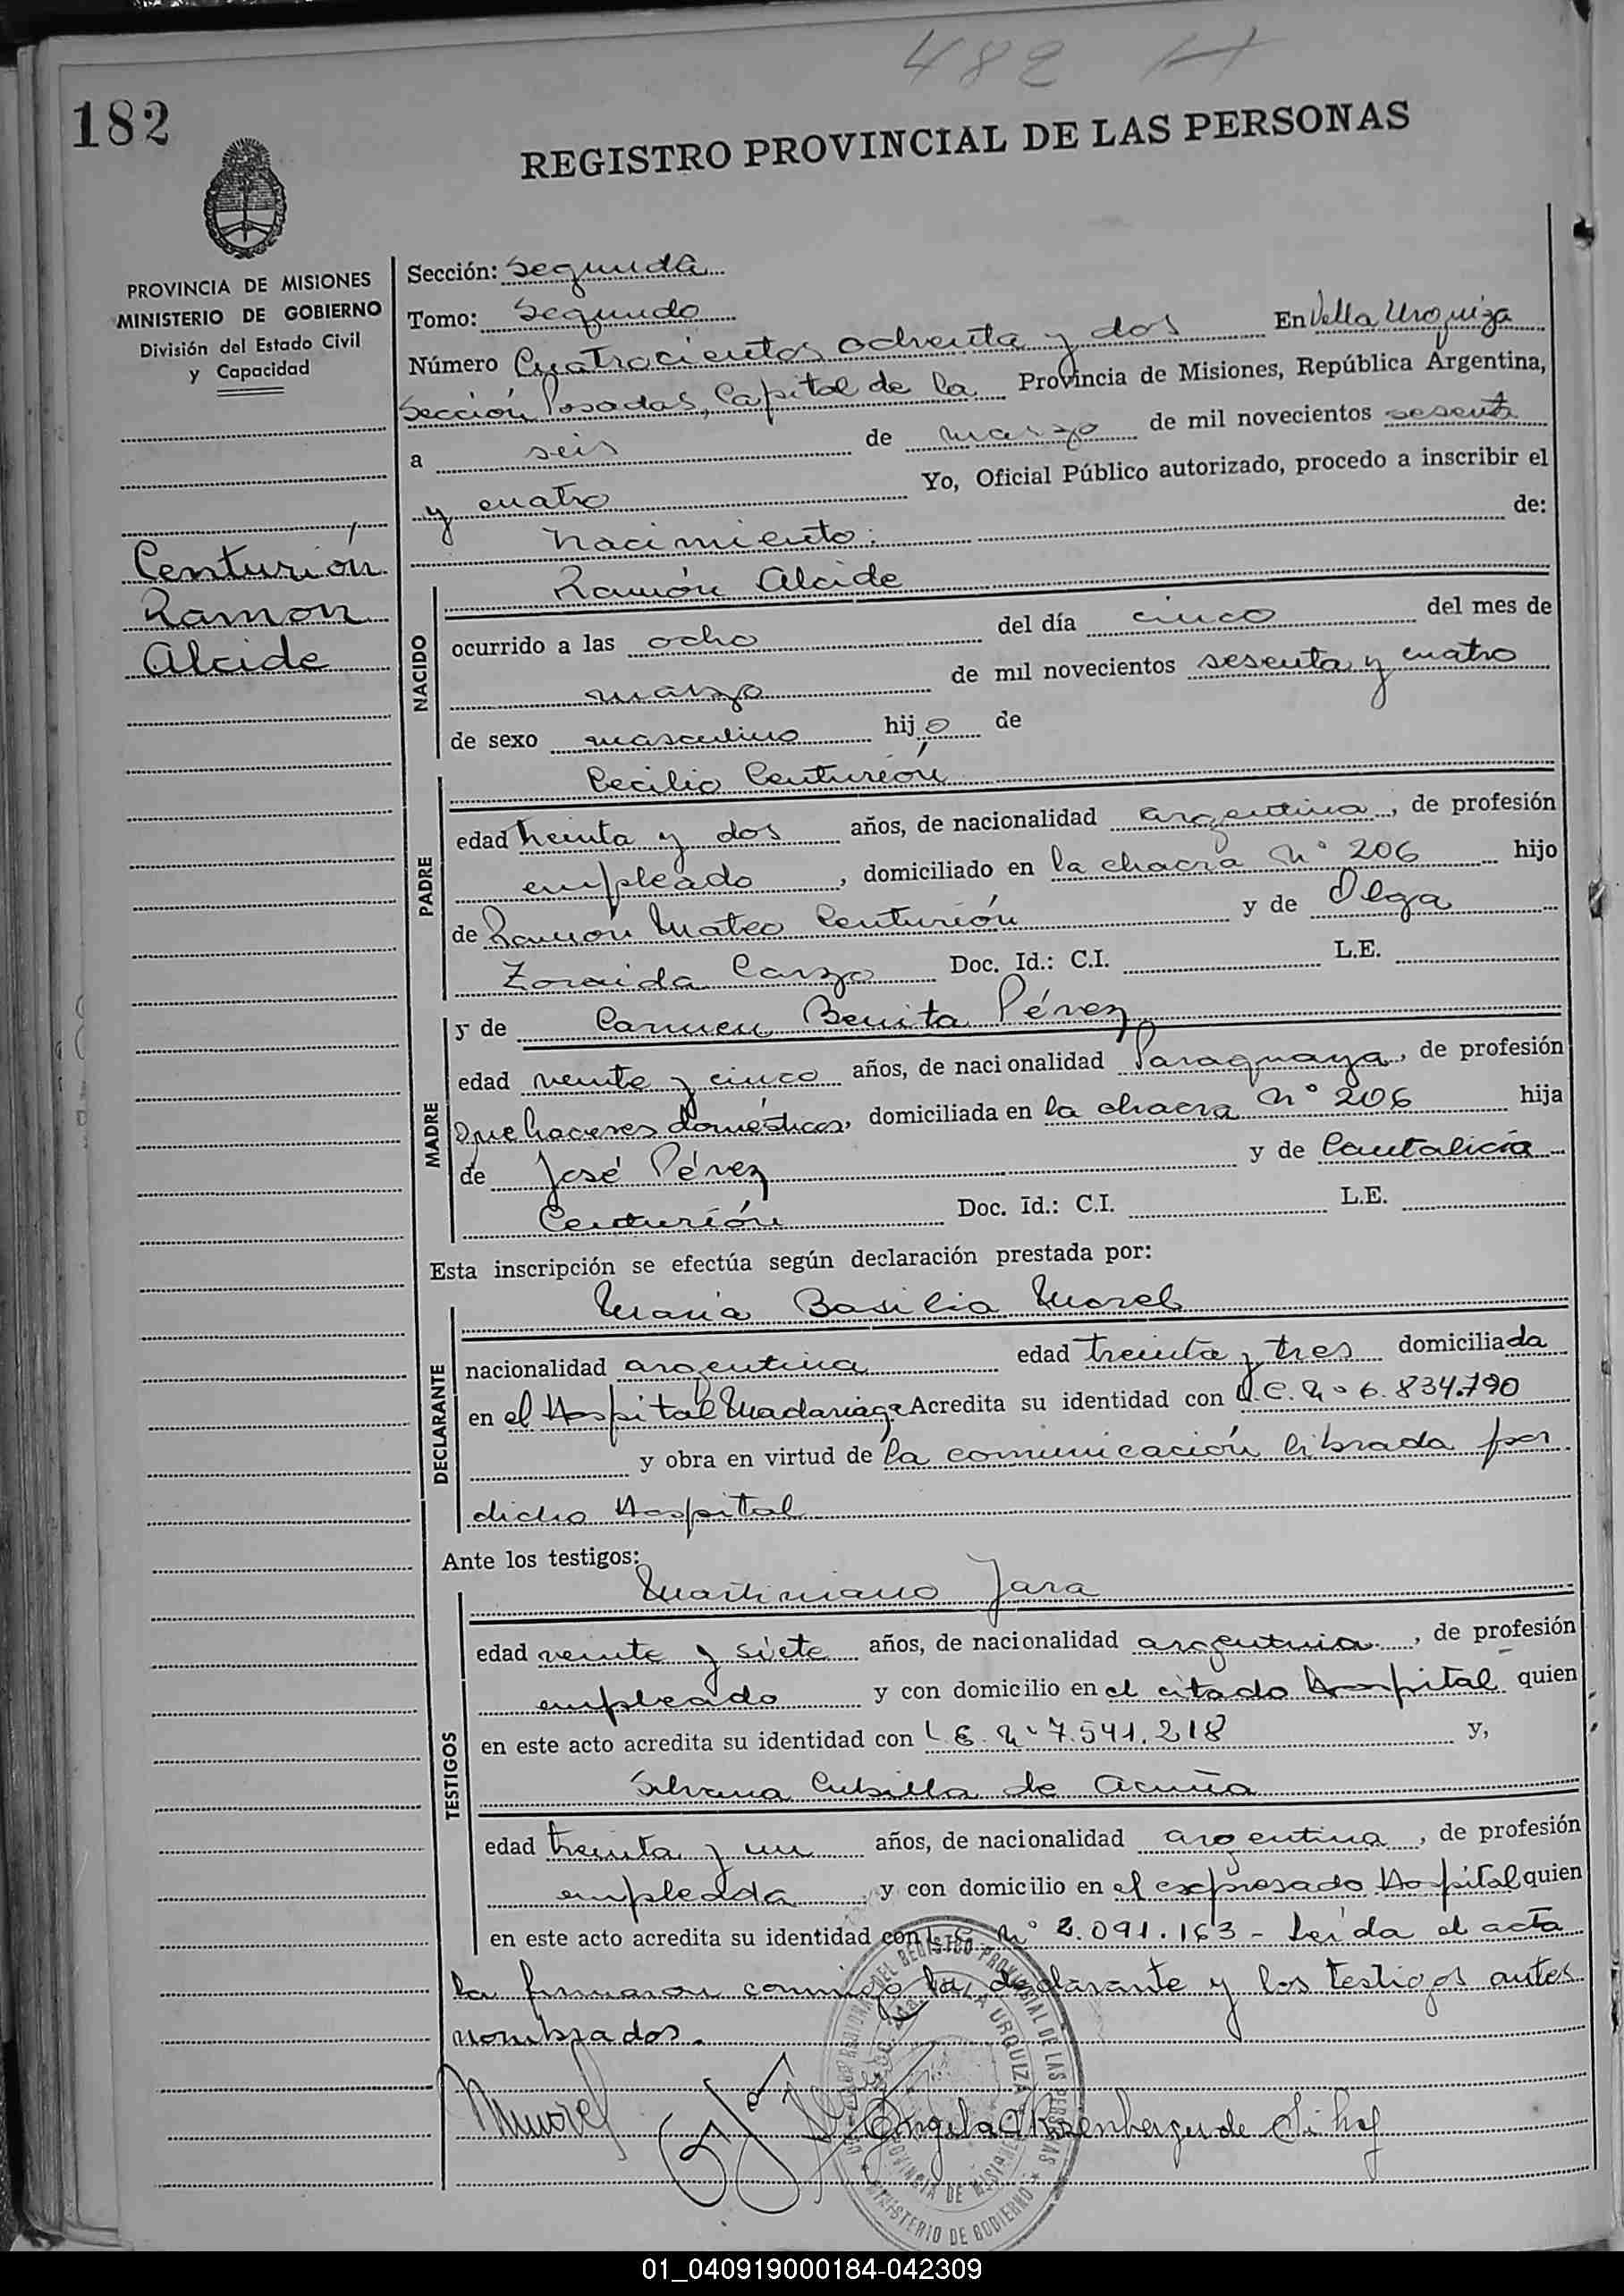 482 H
182
REGISTRO PROVINCIAL DE LAS PERSONAS
PROVINCIA DE MISIONES
MINISTERIO DE GOBIERNO
División del Estado Civil
y Capacidad
Centurión
Ramon
Alcide
Sección: Segunda
Tomo: Segundo
Número Cuatrocientos ochenta y dos En Villa Urquiza
Sección Posadas, Capital de la Provincia de Misiones, República Argentina,
a seis de marzo de mil novecientos sesenta
y cuatro Yo, Oficial Público autorizado, procedo a inscribir el
nacimiento: de:
NACIDO
Ramón Alcide
ocurrido a las ocho del día cinco del mes de
marzo de mil novecientos sesenta y cuatro
de sexo masculino hijo de
PADRE
Cecilio Centurión
edad treinta y dos años, de nacionalidad argentina, de profesión
empleado, domiciliado en la chacra Nº 206 hijo
de Ramón Mateo Centurión y de Olga
Zoraida Carzo Doc. Id.: C.I. L.E.
MADRE
y de Carmen Benita Pérez
edad veinte y cinco años, de nacionalidad Paraguaya, de profesión
Quehaceres domésticos, domiciliada en la chacra Nº 206 hija
de José Pérez y de Cantalicia
Centurión Doc. Id.: C.I. L.E.
Esta inscripción se efectúa según declaración prestada por:
DECLARANTE
María Basilia Morel
nacionalidad argentina edad treinta y tres domiciliada
en el Hospital Madariaga Acredita su identidad con L.C. Nº 6.834.790
y obra en virtud de la comunicación librada por
dicho Hospital
Ante los testigos:
TESTIGOS
Martiniano Jara
edad veinte y siete años, de nacionalidad argentina, de profesión
empleado y con domicilio en el citado Hospital quien
en este acto acredita su identidad con L.E. Nº 7.541.218 y,
Silvana Cubilla de Acuña
edad treinta y un años, de nacionalidad argentina, de profesión
empleada y con domicilio en el expresado Hospital quien
en este acto acredita su identidad con Nº 2.091.163 - Leída el acta
la firmaron conmigo la declarante y los testigos antes
nombrados.
MMorel
REGISTRO PROVINCIAL DE LAS PERSONAS
URQUIZA
PROVINCIA DE MISIONES
MINISTERIO DE GOBIERNO
01_040919000184-042309